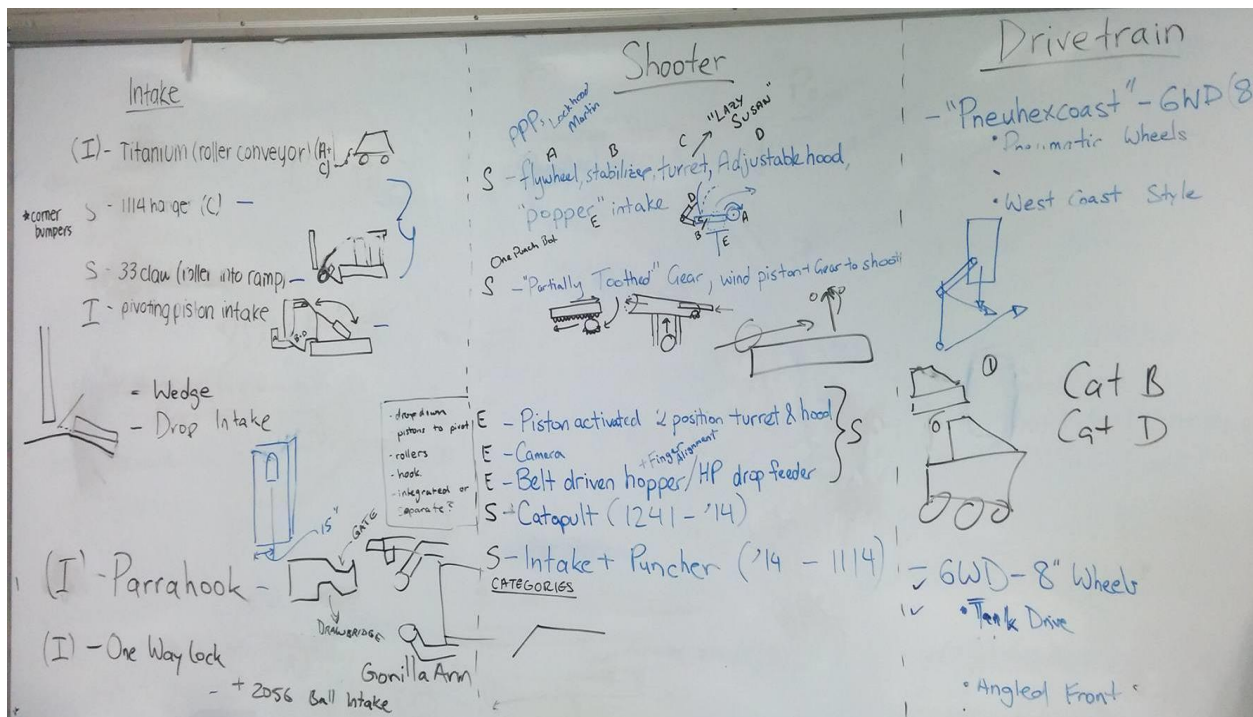 Intake
(I) - Titanium (roller conveyor) (A+
C)
S - 1114 (C) -
*corner
bumpers
S - 33 claw (roller into ramp) -
I - pivoting piston intake
- Wedge
- Drop Intake
- drop down
pistons to pivot
- rollers
- hook
- integrated or
separate?
15"
GATE
(I) - Parrahook -
DRAWBRIDGE
(I) - One Way Lock
- + 2056 Ball Intake
Gorilla Arm
Shooter
PPP, Lockheed
Martin
"LAZY
SUSAN"
A B C D
S - flywheel, stabilizer, turret, Adjustable hood,
"popper" intake
E
D
A
B
E
One Punch Bot
S - "Partially Toothed" Gear, wind piston + Gear to shoot
E - Piston activated 2 position turret & hood
E - Camera
+ Finger
Alignment
E - Belt driven hopper/HP drop feeder
S
S - Catapult (1241 - '14)
S - Intake + Puncher ('14 - 1114)
CATEGORIES
Drivetrain
- "Pneuhexcoast" - 6WD (8
• Pneumatic Wheels
• West Coast Style
①
Cat B
Cat D
- 6WD - 8" Wheels
• Tank Drive
• Angled Front